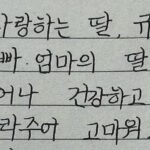 사랑하는 딸, 규
빠·엄마의 딸
어나 건강하고
라주어 고마워.